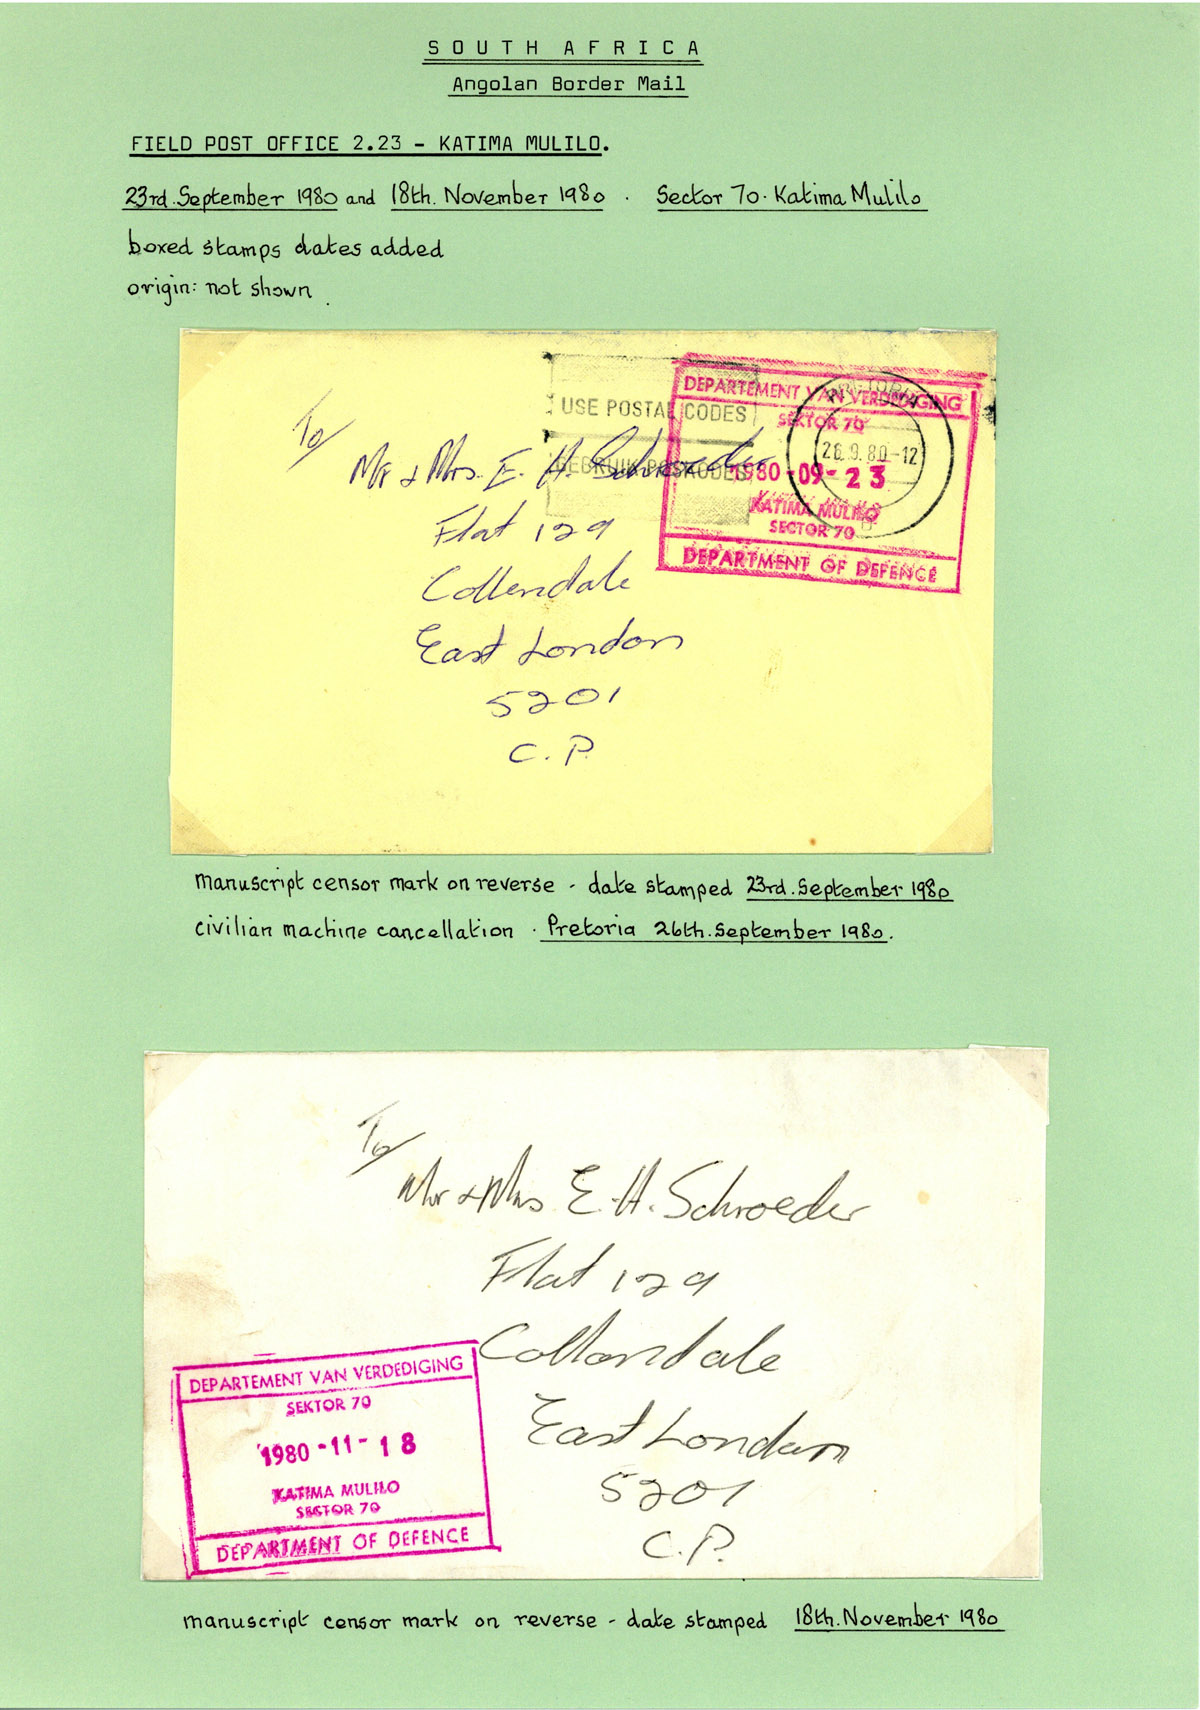 SOUTH AFRICA
Angolan Border Mail
FIELD POST OFFICE 2.23 - KATIMA MULILO.
23rd.September 1980 and 18th. November 1980 . Sector 70. Katima Mulilo
boxed stamps dates added
origin: not shown .
USE POSTAL CODES
GEBRUIK POSKODES
DEPARTEMENT VAN VERDEDIGING
SEKTOR 70
26.9.80-12
1980-09-23
KATIMA MULILO
SECTOR 70
DEPARTMENT OF DEFENCE
To/
Mr & Mrs. E. H. Schroeder
Flat 129
Collendale
East London
5201
C.P.
manuscript censor mark on reverse - date stamped 23rd.September 1980
civilian machine cancellation . Pretoria 26th.September 1980.
To/
Mr & Mrs E.H. Schroeder
Flat 129
Collondale
East London
5201
C.P.
DEPARTEMENT VAN VERDEDIGING
SEKTOR 70
1980-11-18
KATIMA MULILO
SECTOR 70
DEPARTMENT OF DEFENCE
manuscript censor mark on reverse - date stamped 18th.November 1980